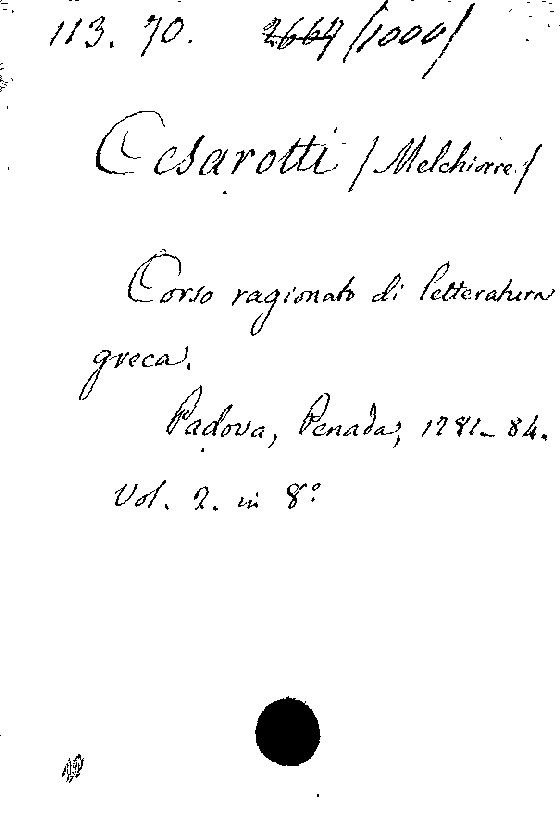 113. 70. 2667 /1000/
Cesarotti /Melchiorre/
Corso ragionato di letteratura
greca.
Padova, Penada, 1781-84.
Vol. 2. in 8°